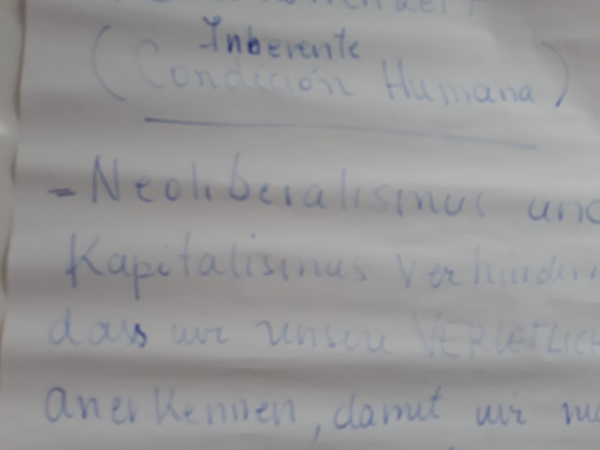 Inherente
(Condición Humana)
- Neoliberalismus und
Kapitalismus verhindern
dass wir unsere
anerkennen, damit wir